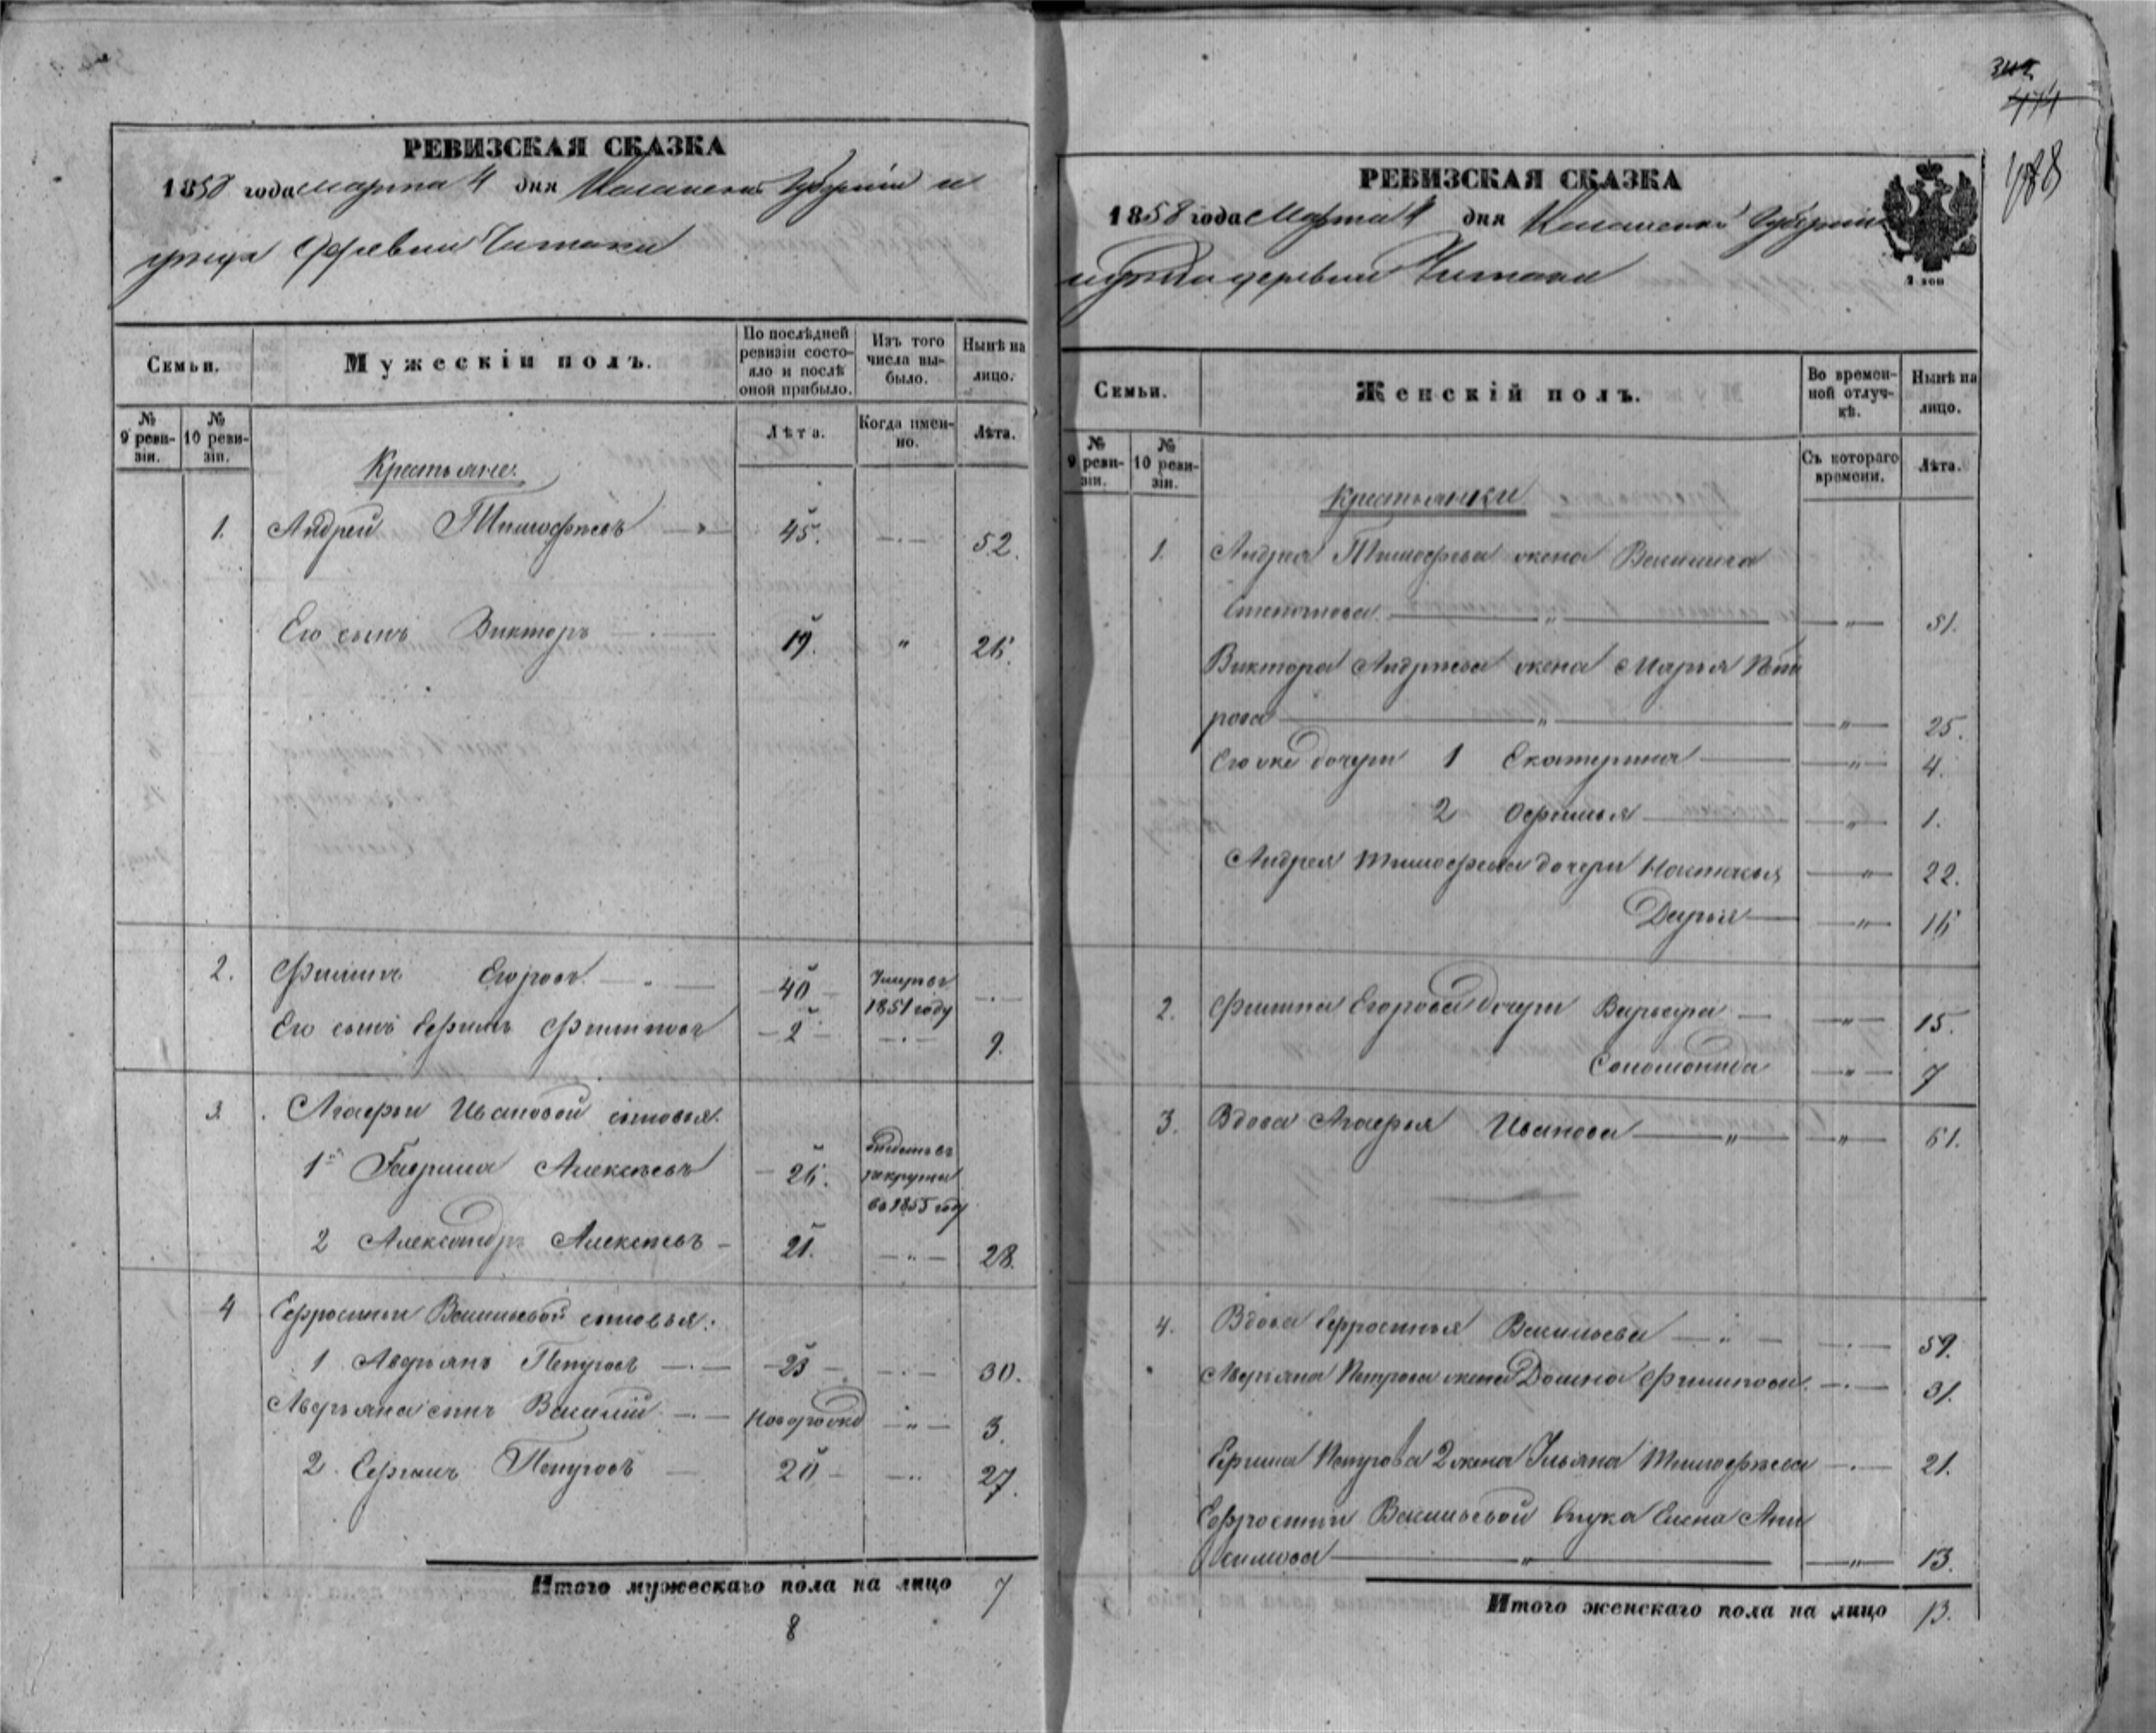 РЕВИЗСКАЯ СКАЗКА
1858 года Марта 4 дня Казанской Губернiи и
уѣзда деревни Читаки
Семьи.
Мужескiй полъ.
По послѣдней ревизiи состояло и послѣ оной прибыло.
Изъ того числа выбыло.
Нынѣ на лицо.
№ 9 ревизiи.
№ 10 ревизiи.
Лѣта.
Когда именно.
Лѣта.
Крестьяне.
1. Андрей Тимофѣевъ 45. 52.
Его сынъ Викторъ 19. " 26.
2. Филипъ Егоровъ 40 Умеръ въ 1851 году
Его сынъ Ефимъ Филиповъ 2 9.
3. Агафьи Ивановой сыновья.
1й Гаврила Алексѣевъ 26. отданъ въ рекруты въ 1855 году
2 Александръ Алексѣевъ 21. 28.
4 Ефросиньи Васильевой сыновья:
1 Аверьянъ Петровъ 23 30.
Аверьяна сынъ Василiй Новорожд " 3.
2. Сергѣй Петровъ 20 27.
Итого мужескаго пола на лицо 7
8
342
474
488
РЕВИЗСКАЯ СКАЗКА
1858 года Марта 4 дня Казанской Губернiи
и уѣзда деревни Читаки
Семьи.
Женскiй полъ.
Во временной отлучкѣ.
Нынѣ на лицо.
№ 9 ревизiи.
№ 10 ревизiи.
Съ котораго времени.
Лѣта.
Крестьянки
1. Андрея Тимофѣева жена Василиса
Степанова " " 51.
Виктора Андрѣева жена Марья Пет
рова " " 25.
Его же дочери 1 Екатерина " 4.
2 Офимья " 1.
Андрея Тимофѣева дочери Настасья " 22.
Дарья " 16
2. Филипа Егорова дочери Варвара " 15.
Соломонида " 7
3. Вдова Агафья Иванова " " 61.
4. Вдова Ефросинья Васильева " 59.
Аверьяна Петрова жена Домна Филипова 31.
Сергѣя Петрова 2 жена Ульяна Тимофѣева 21.
Ефросиньи Васильевой внука Елена Ани
симова " " 13.
Итого женскаго пола на лицо 13.